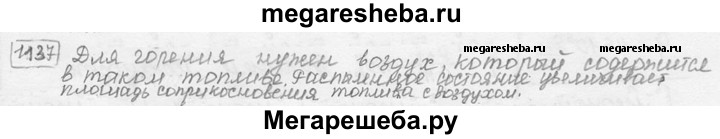 megaresheba.ru
1137 Для горения нужен воздух, который содержится
megaresheba.ru megaresheba.ru
в таком топливе. Распыленное состояние увеличивает
площадь соприкосновения топлива с воздухом.
Мегарешеба.ру